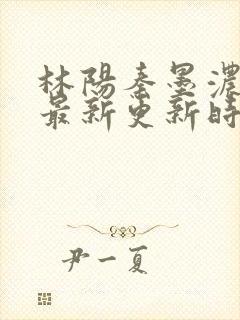 林陽秦墨濃
最新更新時
尹一夏